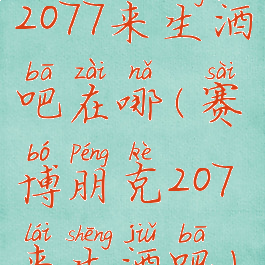 2077来生酒
bā zài nǎ sài
吧在哪(赛
bó Péng kè
博朋克207
lái shēng jiǔ bā
来生酒吧)